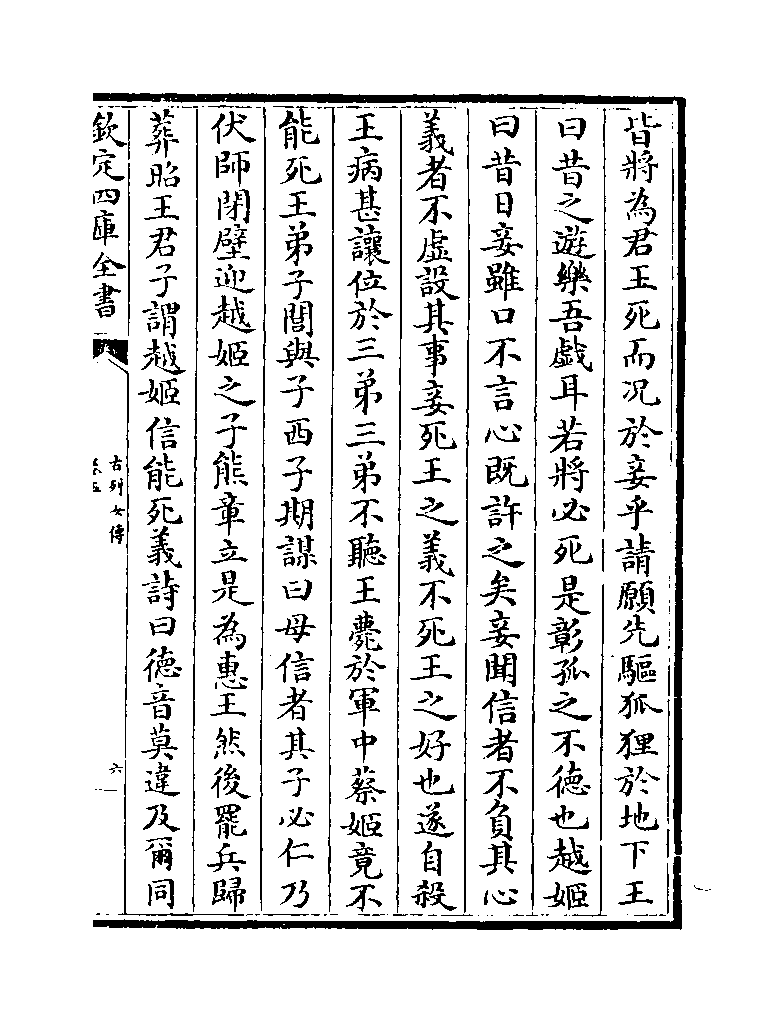 皆將為君王死而况於妾乎請願先驅狐狸於地下王
曰昔之遊樂吾戯耳若將必死是彰孤之不徳也越姬
曰昔日妾雖口不言心既許之矣妾聞信者不負其心
義者不虚設其事妾死王之義不死王之好也遂自殺
王病甚讓位於三弟三弟不聽王薨於軍中蔡姬竟不
能死王弟子閭與子西子期謀曰母信者其子必仁乃
伏師閉壁迎越姬之子熊章立是為惠王然後罷兵歸
葬昭王君子謂越姬信能死義詩曰徳音莫違及爾同
欽定四庫全書
古列女傳
卷五
六